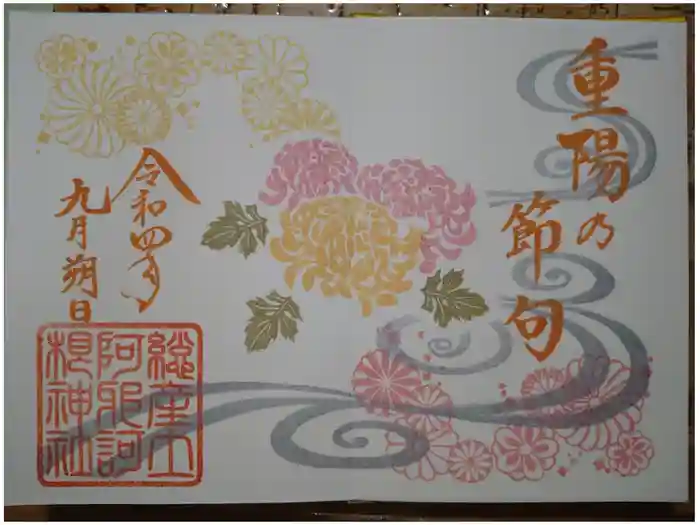 重陽の
節句
令和四年
九月朔日
総産土
阿邪訶
根神社